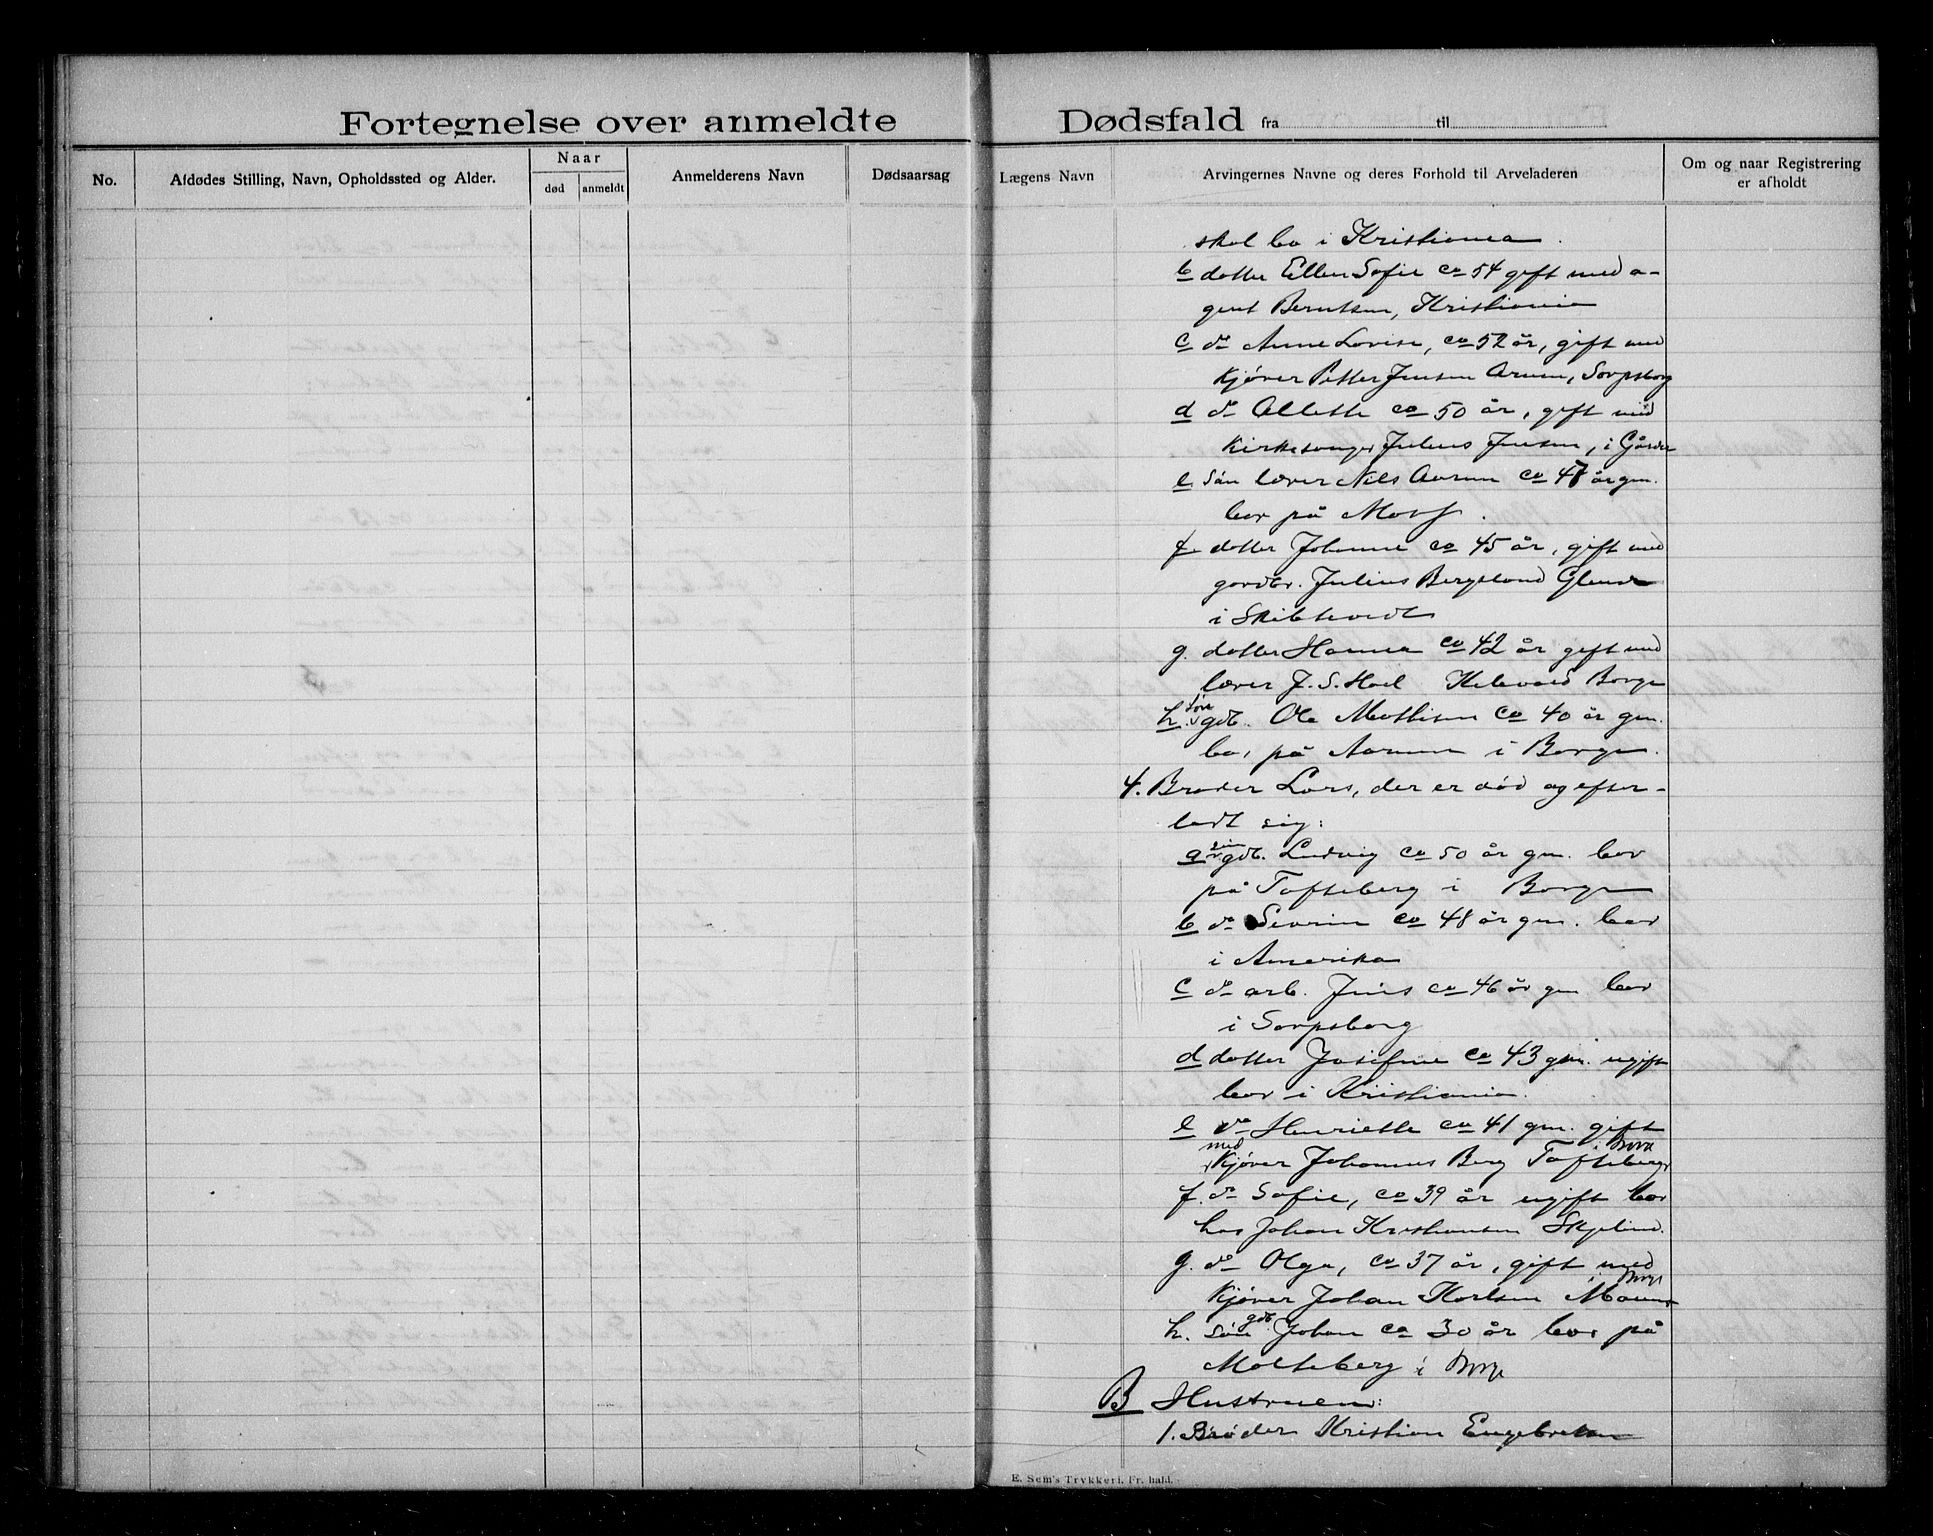 Fortegnelse over anmeldte Dødsfald fra til
No.
Afdødes Stilling, Navn, Opholdssted og Alder.
Naar
død
anmeldt
Anmelderens Navn
Dødsaarsag
Lægens Navn
Arvingernes Navne og deres Forhold til Arveladeren
Om og naar Registrering
er afholdt
skal bo i Kristiania.
b datter Ellen Sofie ca 54 gift med a-
gent Berntsen, Kristiania
c do Anne Lovise, ca 52 år, gift med
kjører Petter Jensen Arum, Sarpsborg
d do Allette ca 50 år, gift med
kirkesanger Julius Jensen, i
e. Søn lærer Nils Aarum ca 47 år gm.
bor på Moss.
f datter Johanne ca 45 år, gift med
gardbr. Julius Bergslund
i Skibtvedt
g. datter Hanna ca 42 år gift med
lærer J. S. Hoel Borge
h. søn gdb. Ole Mathisen ca 40 år gm.
bor på Aarum i Borge.
4. Broder Lars, der er død og efter-
ladt sig:
a søn gdb. Ludvig ca 50 år gm. bor
på Tofteberg i Borge
b do Severin ca 48 år gm. bor
i Amerika
c do arb. Jens ca 46 år gm bor
i Sarpsborg
d datter Josefine ca 43 gm. ugift
bor i Kristiania.
e do Henriette ca 41 gm. gift
med kjører Johannes Berg Tofteberg i Borge
f. do Sofie, ca 39 år ugift bor
hos Johan Kristiansen
g. do Olga, ca 37 år, gift med
kjører Johan Karlsen i Borge
h. søn gdb. Johan ca 30 år bor på
Molteberg i Borge
B Hustruen:
1. Brøder Kristian Engebretsen
E. Sem's Trykkeri, Fr. hald.